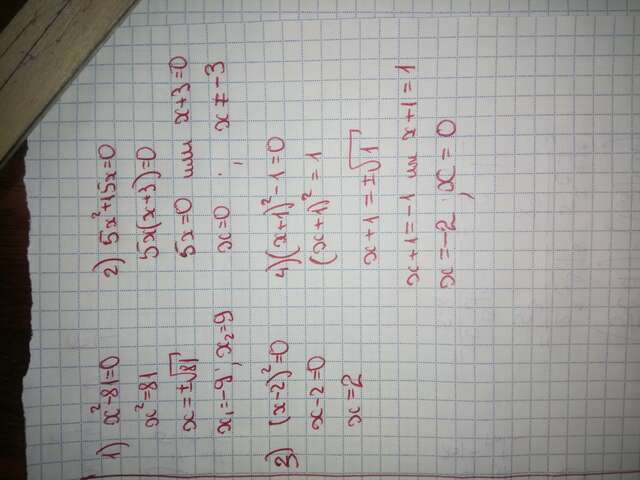 1) x²-81=0
x²=81
x=±√81
x₁=-9; x₂=9
2) 5x²+15x=0
5x(x+3)=0
5x=0 или x+3=0
x=0 ; x≠-3
3) (x-2)²=0
x-2=0
x=2
4) (x+1)²-1=0
(x+1)²=1
x+1=±√1
x+1=-1 или x+1=1
x=-2; x=0